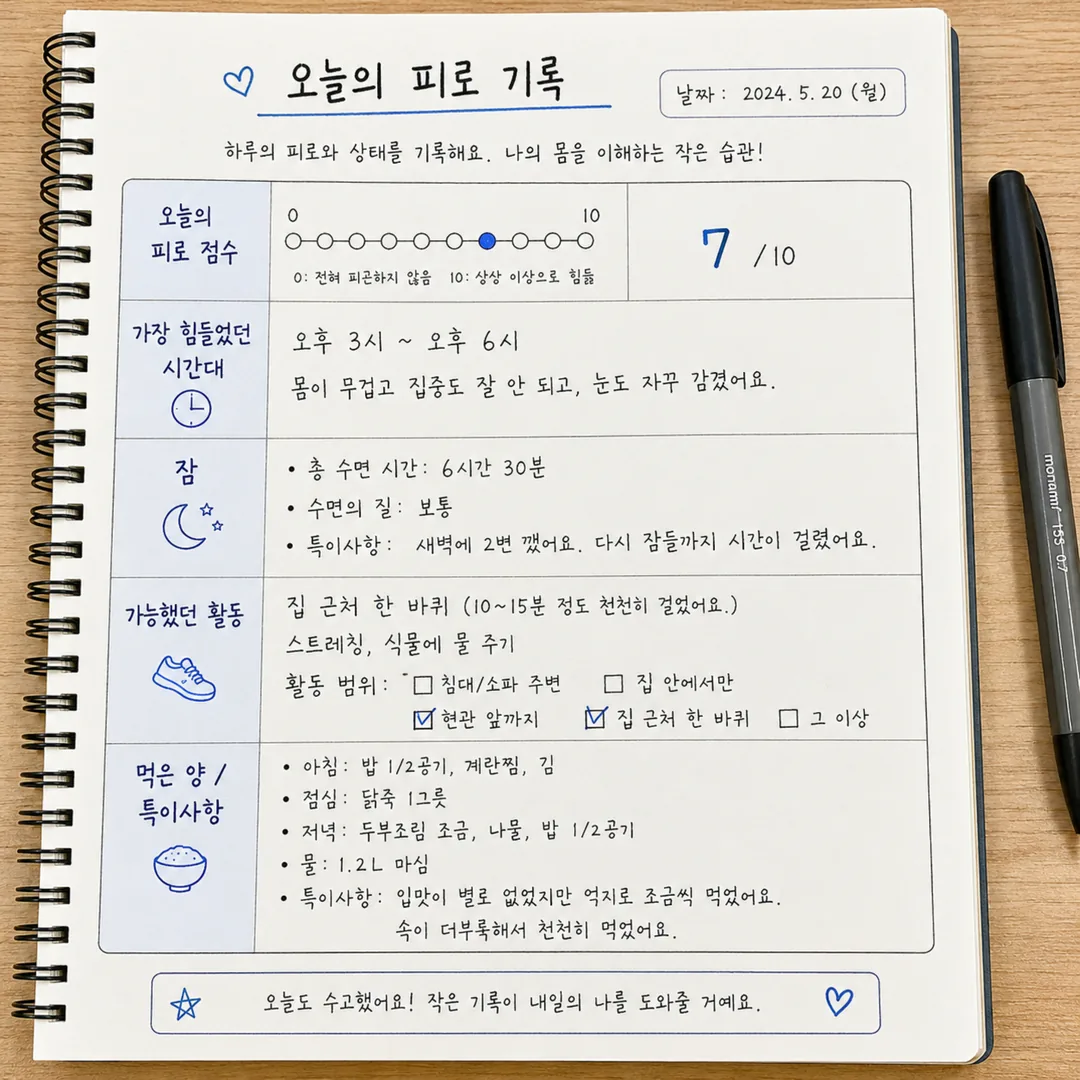 오늘의 피로 기록
날짜 : 2024. 5. 20 (월)
하루의 피로와 상태를 기록해요. 나의 몸을 이해하는 작은 습관!
오늘의
피로 점수
0 10
0: 전혀 피곤하지 않음 10: 상상 이상으로 힘듦
7 /10
가장 힘들었던
시간대
오후 3시 ~ 오후 6시
몸이 무겁고 집중도 잘 안 되고, 눈도 자꾸 감겼어요.
잠
• 총 수면 시간: 6시간 30분
• 수면의 질: 보통
• 특이사항: 새벽에 2번 깼어요. 다시 잠들까지 시간이 걸렸어요.
가능했던 활동
집 근처 한 바퀴 (10~15분 정도 천천히 걸었어요.)
스트레칭, 식물에 물 주기
활동 범위: ☐ 침대/소파 주변 ☐ 집 안에서만
☑ 현관 앞까지 ☑ 집 근처 한 바퀴 ☐ 그 이상
먹은 양 /
특이사항
• 아침: 밥 1/2공기, 계란찜, 김
• 점심: 닭죽 1그릇
• 저녁: 두부조림 조금, 나물, 밥 1/2공기
• 물: 1.2L 마심
• 특이사항: 입맛이 별로 없었지만 억지로 조금씩 먹었어요.
속이 더부룩해서 천천히 먹었어요.
오늘도 수고했어요! 작은 기록이 내일의 나를 도와줄 거예요.
monami 153 0.7